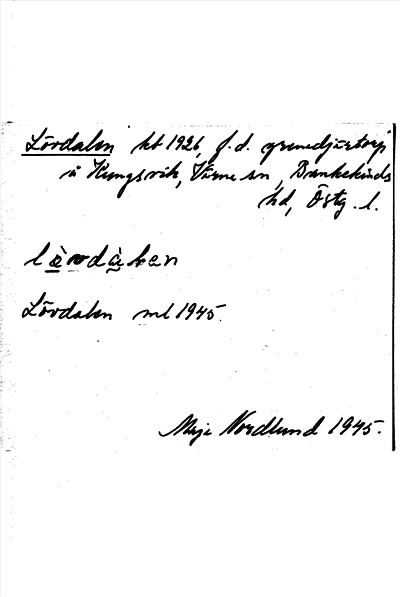 Lövdalen kt 1926, f.d. grenadjärtorp
u Kungsvik, Värna sn, Bankekinds
hd, Östg. l.
lövdàlen
Lövdalen ml 1945.
Maja Nordlund 1945.